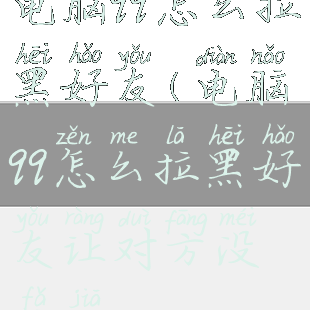 电脑99怎么拉
hēi hǎo yǒu diàn nǎo
黑好友(电脑
zěn me lā hēi hǎo
99怎么拉黑好
yǒu ràng duì fāng méi
友让对方没
tǎ jiā